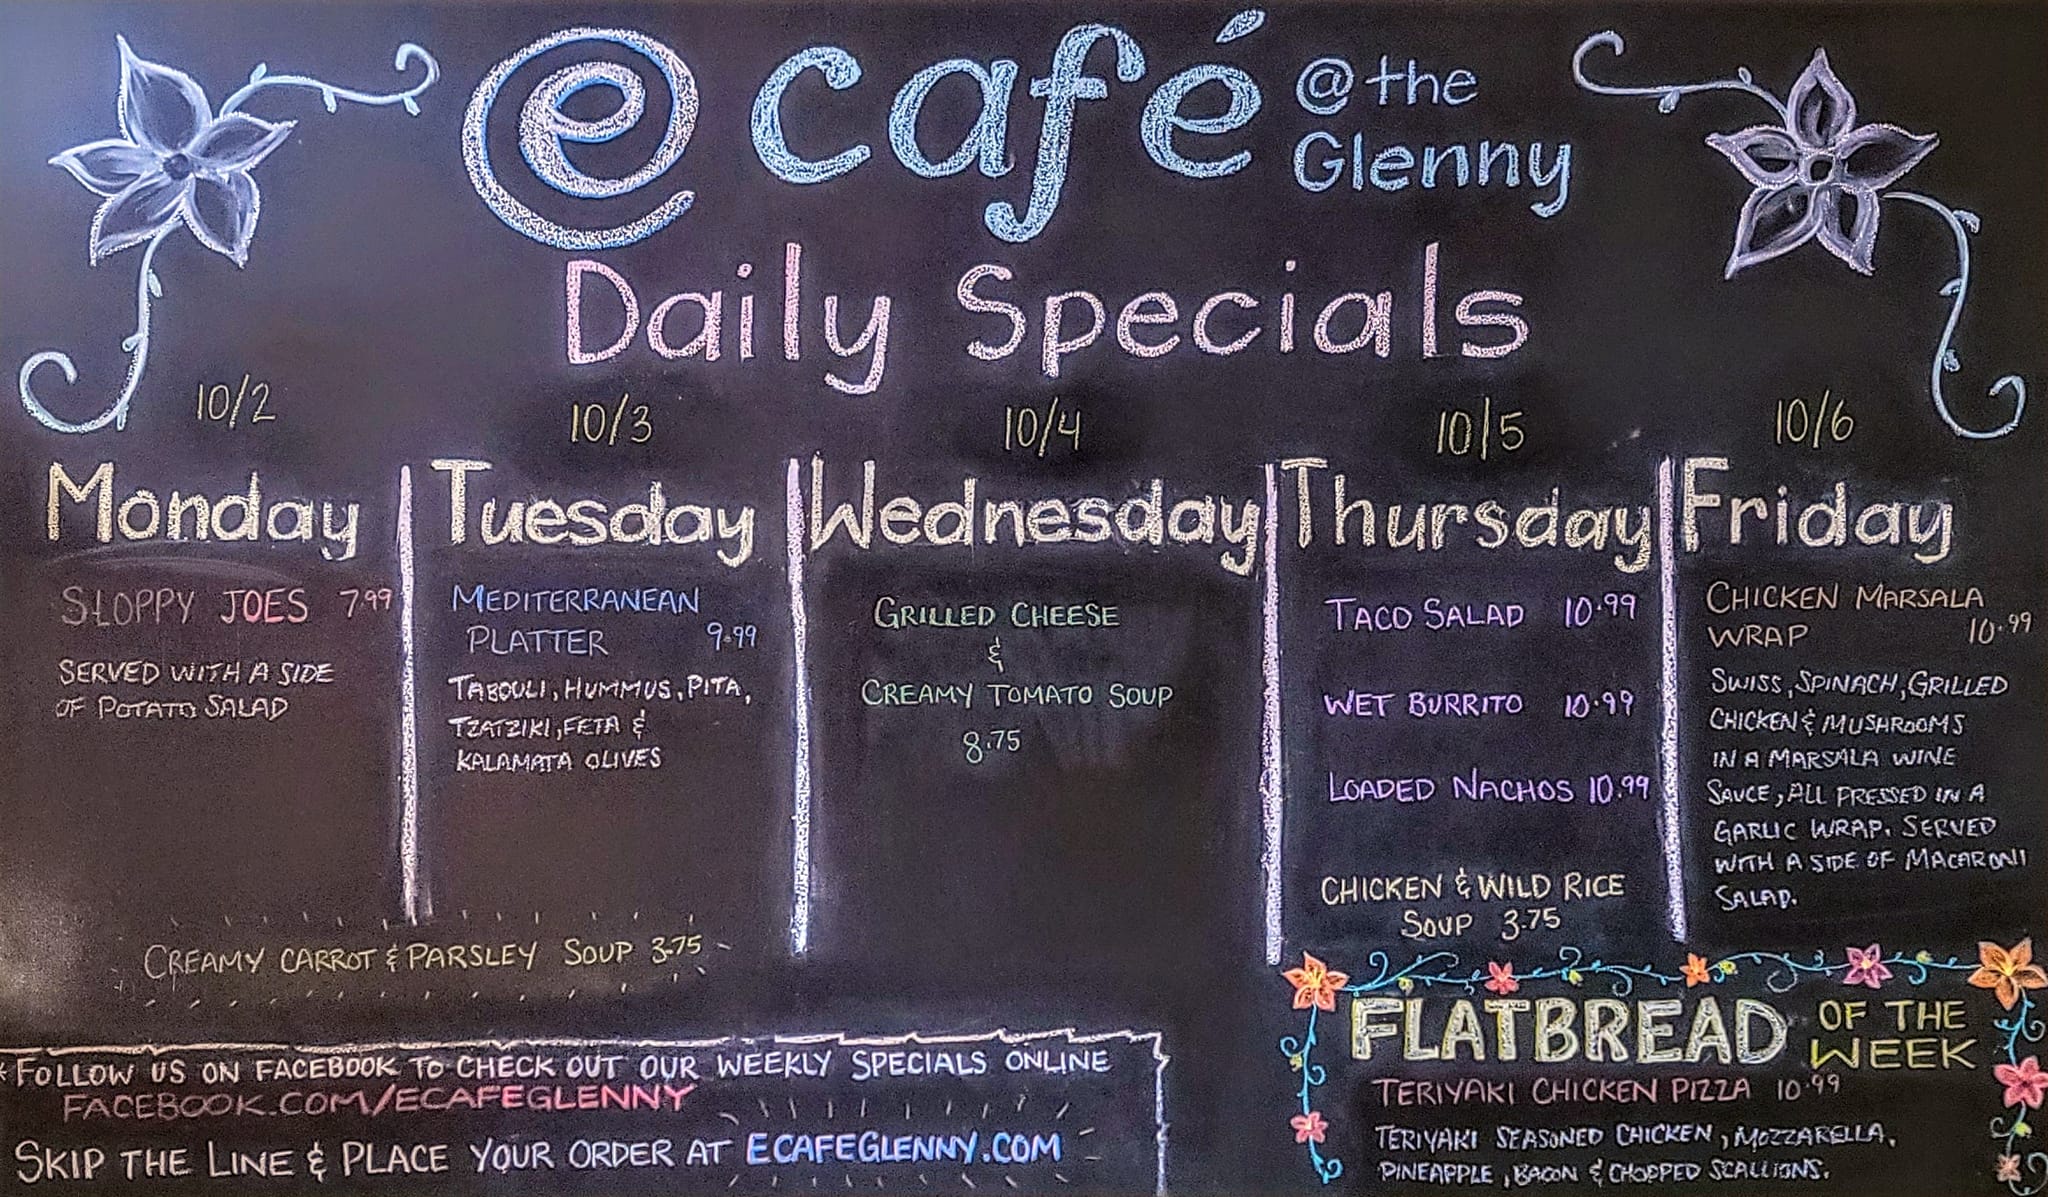 e café @ the
Glenny
Daily Specials
10/2
Monday
SLOPPY JOES 7.99
SERVED WITH A SIDE
OF POTATO SALAD
10/3
Tuesday
MEDITERRANEAN
PLATTER 9.99
TABOULI, HUMMUS, PITA,
TZATZIKI, FETA &
KALAMATA OLIVES
CREAMY CARROT & PARSLEY SOUP 3.75
10/4
Wednesday
GRILLED CHEESE
&
CREAMY TOMATO SOUP
8.75
10/5
Thursday
TACO SALAD 10.99
WET BURRITO 10.99
LOADED NACHOS 10.99
CHICKEN & WILD RICE
SOUP 3.75
10/6
Friday
CHICKEN MARSALA
WRAP 10.99
SWISS, SPINACH, GRILLED
CHICKEN & MUSHROOMS
IN A MARSALA WINE
SAUCE, ALL PRESSED IN A
GARLIC WRAP. SERVED
WITH A SIDE OF MACARONI
SALAD.
*FOLLOW US ON FACEBOOK TO CHECK OUT OUR WEEKLY SPECIALS ONLINE
FACEBOOK.COM/ECAFEGLENNY
SKIP THE LINE & PLACE YOUR ORDER AT ECAFEGLENNY.COM
FLATBREAD OF THE
WEEK
TERIYAKI CHICKEN PIZZA 10.99
TERIYAKI SEASONED CHICKEN, MOZZARELLA,
PINEAPPLE, BACON & CHOPPED SCALLIONS.